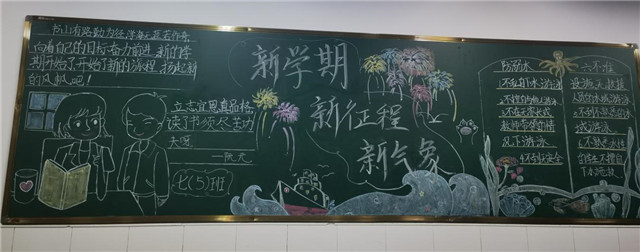 书山有路勤为径,学海无涯苦作舟
向着自己的目标奋力前进,新的学
期开始了,开始了新的旅程,扬起新
的风帆吧!
立志宜思真品格
读书须尽苦功
夫呀
——阮元
七(5)班
新学期
新征程
新气象
防溺水
六不准
1.不私自下水游泳
2.不擅自与他人游泳
3.不在无家长或
教师带领的情
况下游泳
4.不到无安全
设施、无救援
人员的水域游泳
5.不到不熟悉的水
域游泳
6.不熟悉水性
的学生不擅自
下水施救